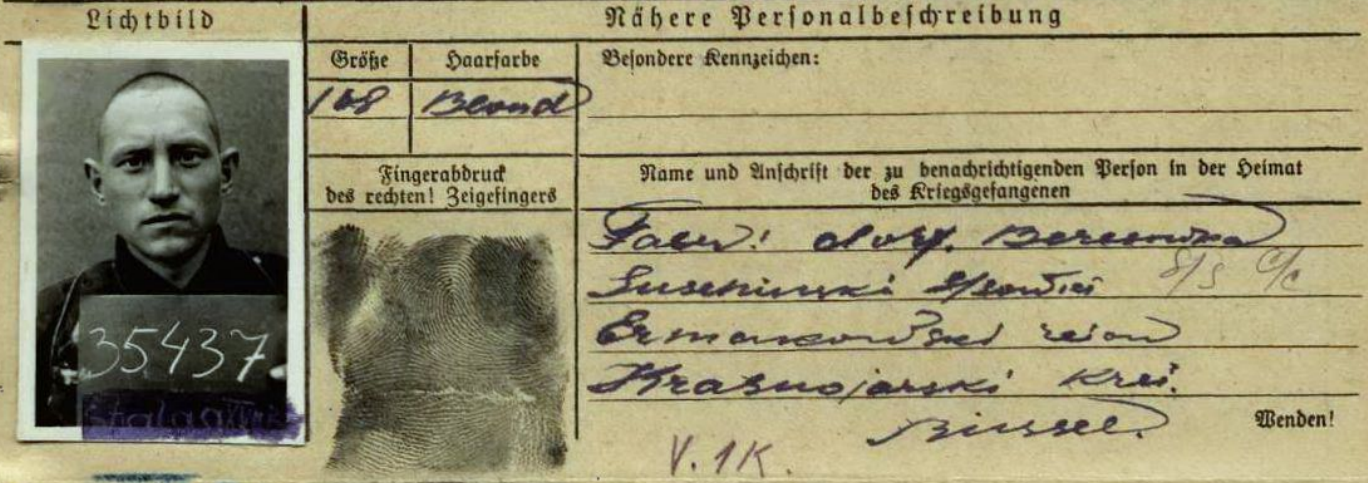 Lichtbild
Nähere Personalbeschreibung
Größe
Haarfarbe
Besondere Kennzeichen:
168
Blond
Fingerabdruck
des rechten! Zeigefingers
Name und Anschrift der zu benachrichtigenden Person in der Heimat
des Kriegsgefangenen
dorf. Beresowka
Suschinski s/sowiet S/S
Ermakowski reion
Krasnojarski Krei.
35437
Stalag
Wenden!
V. 1K.